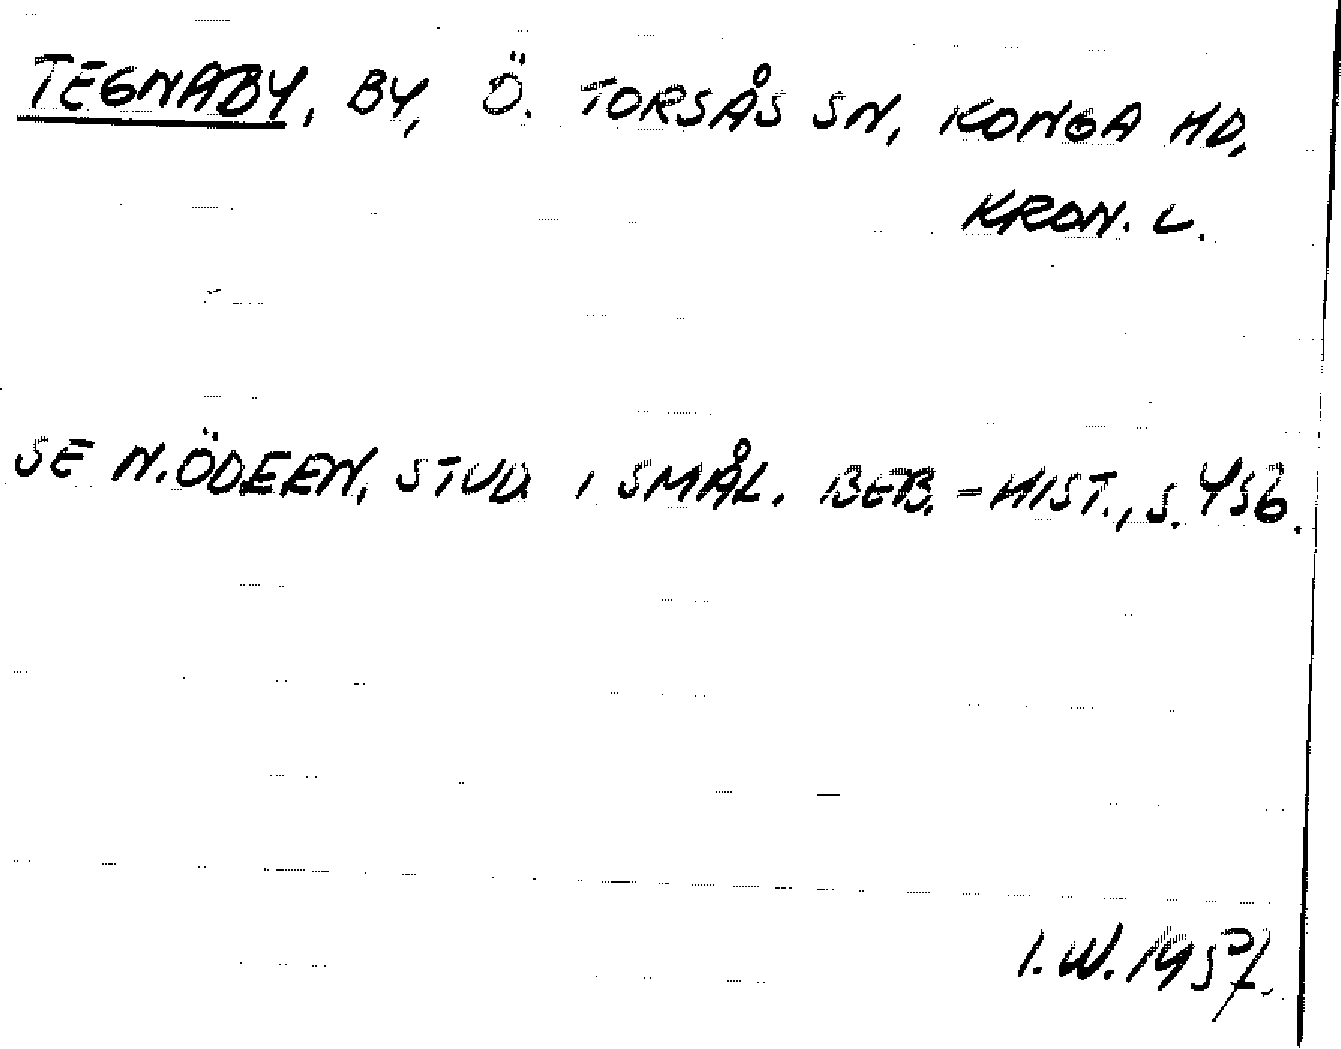 TEGNABY, BY, Ö. TORSÅS SN, KONGA HD,
KRON. L.
SE N. ÖDEEN, STUD. I SMÅL. BEB.-HIST., S. 456.
I.W. 1957.